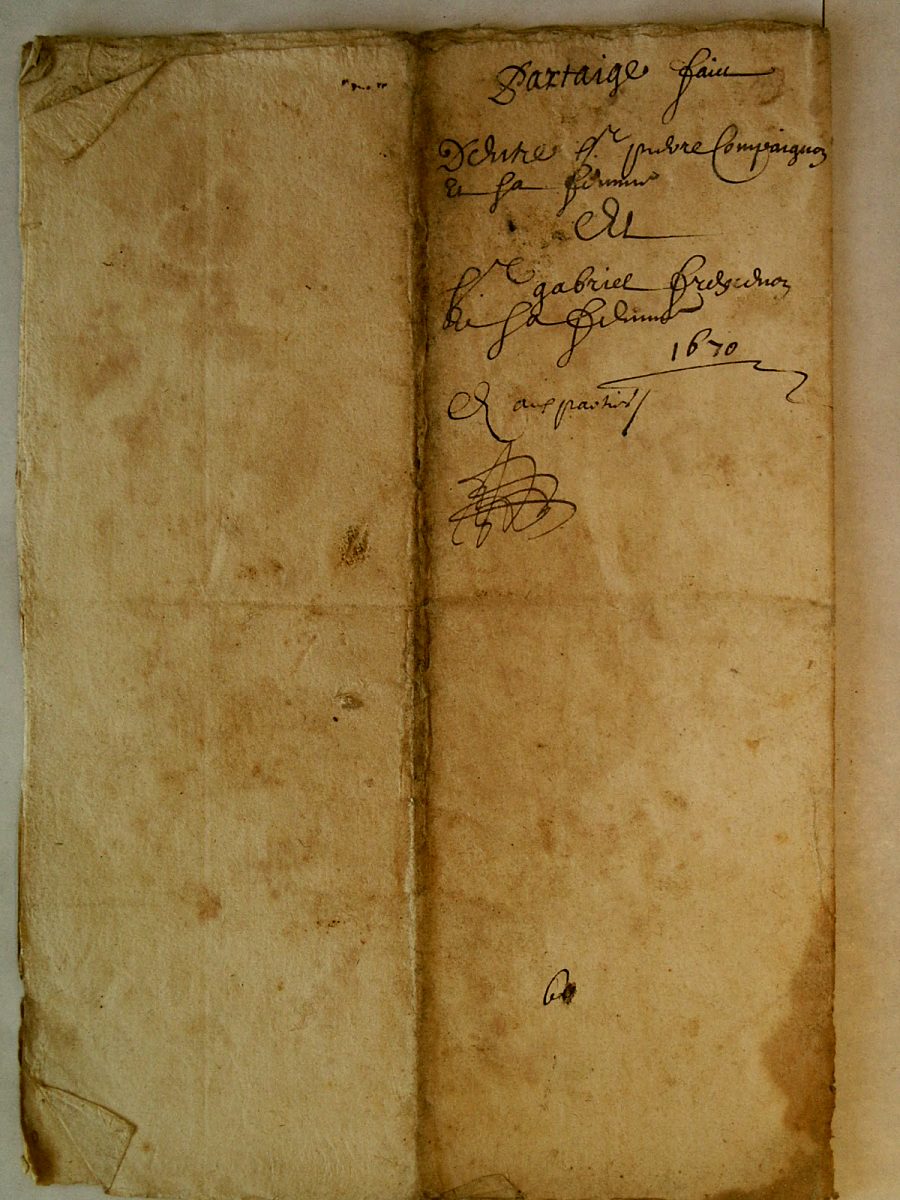 Partaige faict
D'entre sr pierre Compaignon
et sa femme
Et
sr gabriel
et sa femme
1670
aux parties